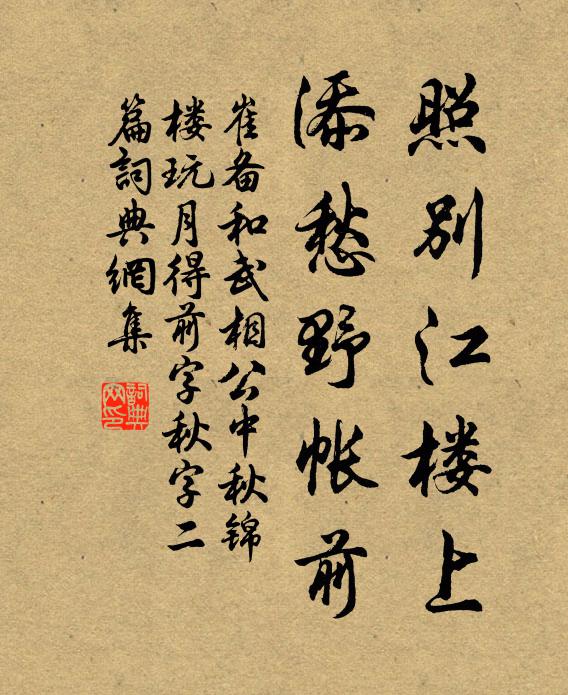 照别江楼上
添愁野帐前
崔备和武相公中秋锦
楼玩月得前字秋字二
篇詞典網集
詞典
网印